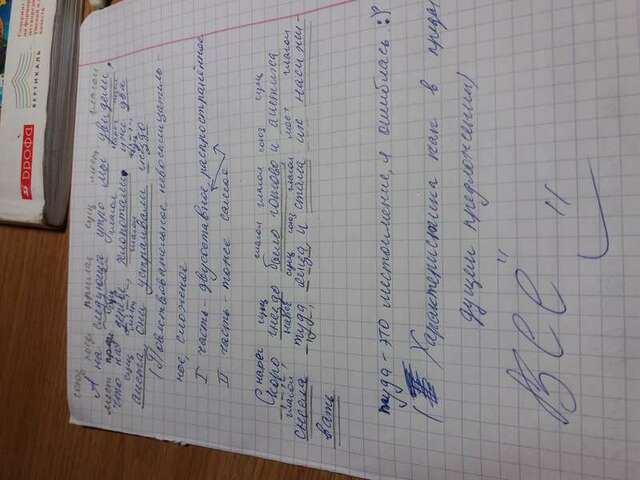 дрофа
ВЕРТИКАЛЬ
союз предл прилаг сущ мест глагол
А на следующее утро мы увидели,
мест предл сущ глагол
что на дереве хлопотали уже два
сущ мест глагол
аиста, они устраивали гнездо
(Повествовательное, невосклицатель-
ное, сложное
I часть - двусоставное, распространённое
II часть - тоже самое
нареч сущ глагол глагол союз сущ
Скоро гнездо было готово и аистиха
глагол нареч сущ союз глагол мест глагол
снесла туда яйца и стала их насижи-
вать
туда - это местоимение, я ошиблась :)
( ) Характеристика как в преды
дущем предложении)
ВСЁ